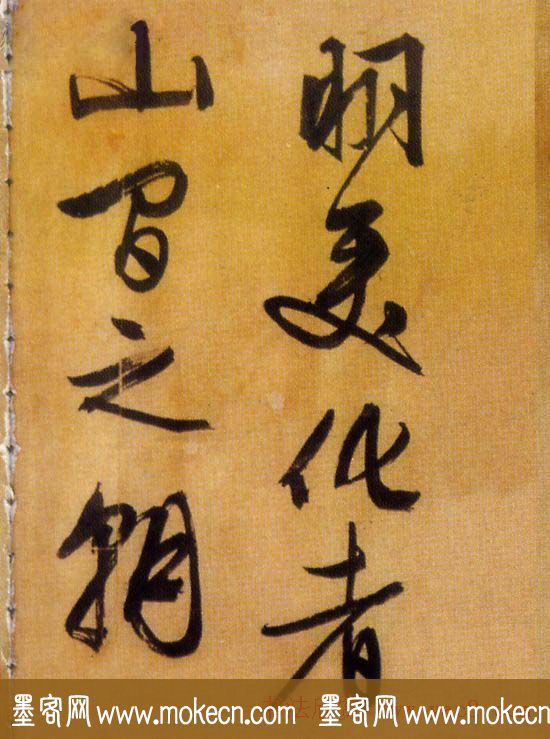 明變化者
山間之朝
墨客网 www.mokecn.com 墨客网 www.mokecn.com